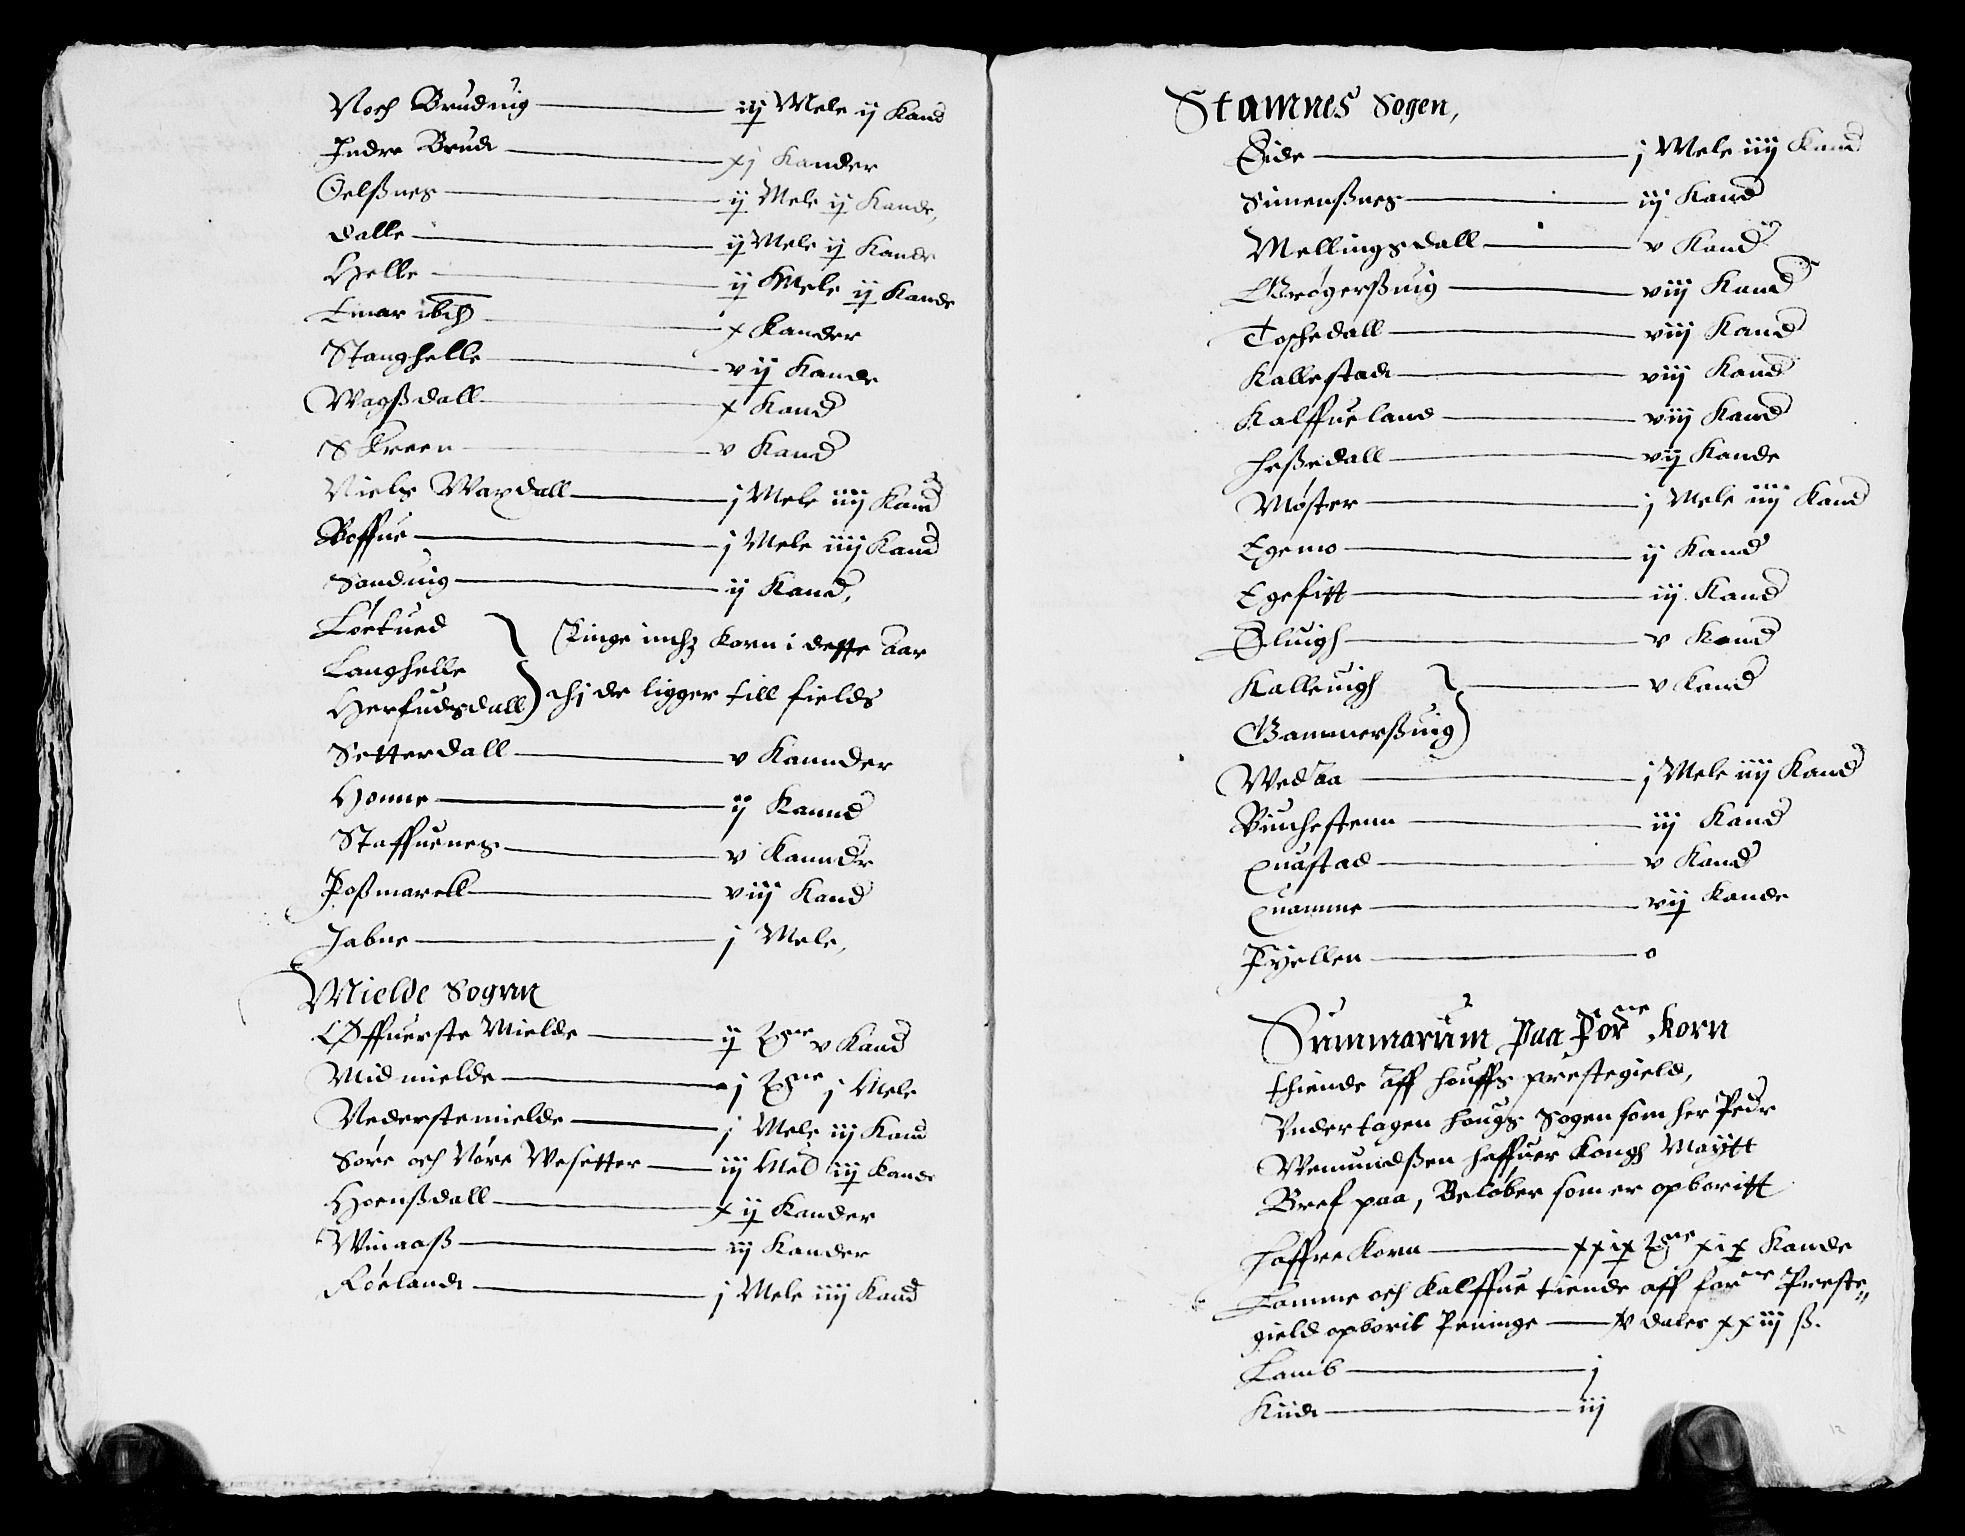 Noch Bruduig — iij Mele ij Kand
Indre Brude — xj Kander
Oelßnes — ij Mele ij Kande,
Dalle — ij Mele ij Kande
Helle — ij Mele ij Kande
Einar ibid — x Kander
Stanghelle — vij Kande
Wagßdall — x Kand
Skreen — v Kand
Niels Waxdall — j Mele iiij Kand
Boffue — j Mele iiij Kand
Sanduig — ij Kand,
Løetued
Langhelle } Kinge inchz korn i dette aar
Herfudsdall) thj de ligger till fields
Setterdall — v Kannder
Honne — ij Kannd
Staffuenes — v Kannder
Foßmarck — viij Kand
Jabne — j Mele,
Mielde Sogen
Øffuerste Mielde — ij v Kand
Midmielde — j j Mele
Nederstemielde — j Mele iij Kand
Søre och Nøre Wesetter — iij Mel iij Kande
Hoenßdall — xij Kander
Winaaß — iij Kander
Røeland — j Mele iiij Kand
Stamnes Sogen,
Eide — j Mele iiij Kand
Simenßnes — iij Kand
Mellingsdall — v Kand
Grøgerßuig — viij Kand
Toschedall — viij Kand
Kallestad — viij Kand
Kalffueland — viij Kand
Heßedall — vij Kande
Møster — j Mele iiij Kand
Egemo — ij Kand
Egefitt — iij Kand
Eluigh — v Kand
Kalleuigh } — v Kand
Gammerßuig)
Wedaa — j Mele iiij Kand
Binchestenn — iij Kand
Quastad — v Kand
Quamme — vij Kande
Fyellen — o
Summarum paa Forne Korn
thiende aff houffs prestegield,
Vndertagen hougs Sogen som her Peder
Wemundßen haffuer Kongh Maytt
Bref paa, Beløber som er opboritt
Haffre Korn — xxix xix Kande
Lamme och Kalffue tiende aff forne Preste„
gield opborit Peninge — xv daler xxiij ß.
Lamb — j
Kiid — iij
12